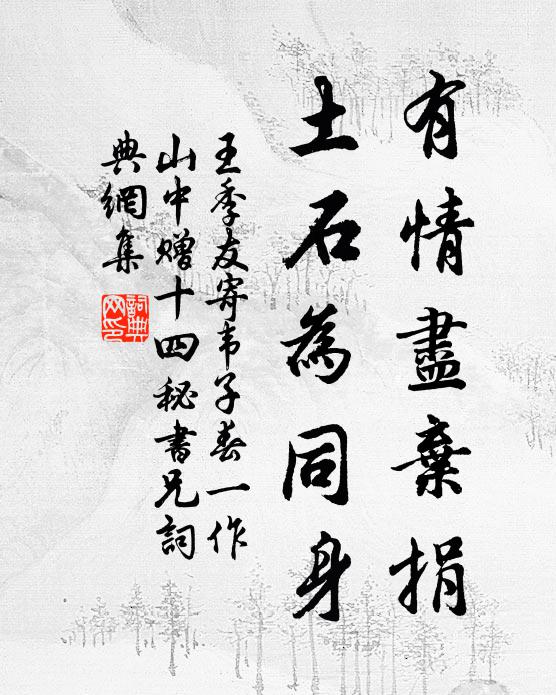 有情盡棄捐
土石為同身
王季友寄韦子春一作
山中赠十四秘書兄詞
典網集
詞典網印